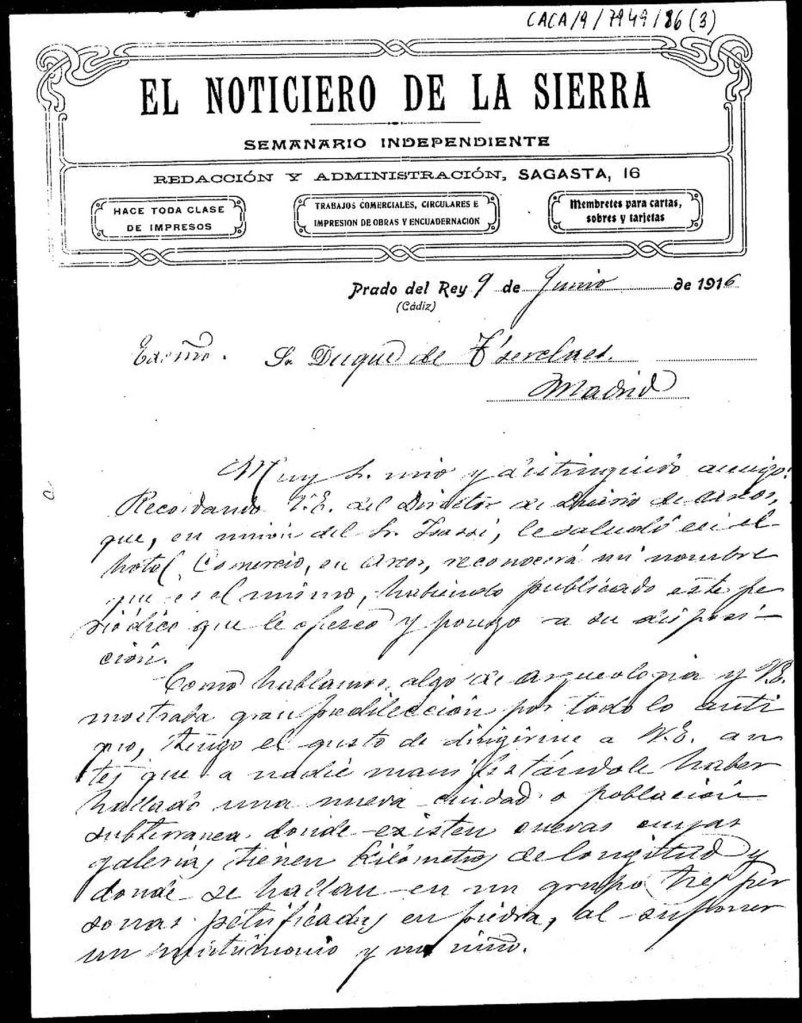 CACA/9/7949/86(3)
EL NOTICIERO DE LA SIERRA
SEMANARIO INDEPENDIENTE
REDACCIÓN Y ADMINISTRACIÓN, SAGASTA, 16
HACE TODA CLASE
DE IMPRESOS
TRABAJOS COMERCIALES, CIRCULARES E
IMPRESION DE OBRAS Y ENCUADERNACION
Membretes para cartas,
sobres y tarjetas
Prado del Rey 9 de Junio de 1916
(Cádiz)
Excmo. Sr Duque de T'serclaes.
Madrid
Muy Sr. mio y distinguido amigo:
Recordando V.E. del Director de Diario de Arcos,
que, en union del Sr. , le saludó en el
hotel Comercio, en Arcos, reconocerá mi nombre
que es el mismo, habiendo publicado este pe
riódico que le ofrezco y pongo a su disposi-
ción.
Como hablamos algo de arqueologia y V.E.
mostraba gran predilección por todo lo anti
guo, tengo el gusto de dirigirme a V.E. an
tes que a nadie manifestándole haber
hallado una nueva ciudad o población
subterranea donde existen cuevas cuyas
galerias tienen Kilómetros de longitud y
donde se hallan en un grupo tres per
sonas petrificadas en piedra, al suponer
un matrimonio y un niño.